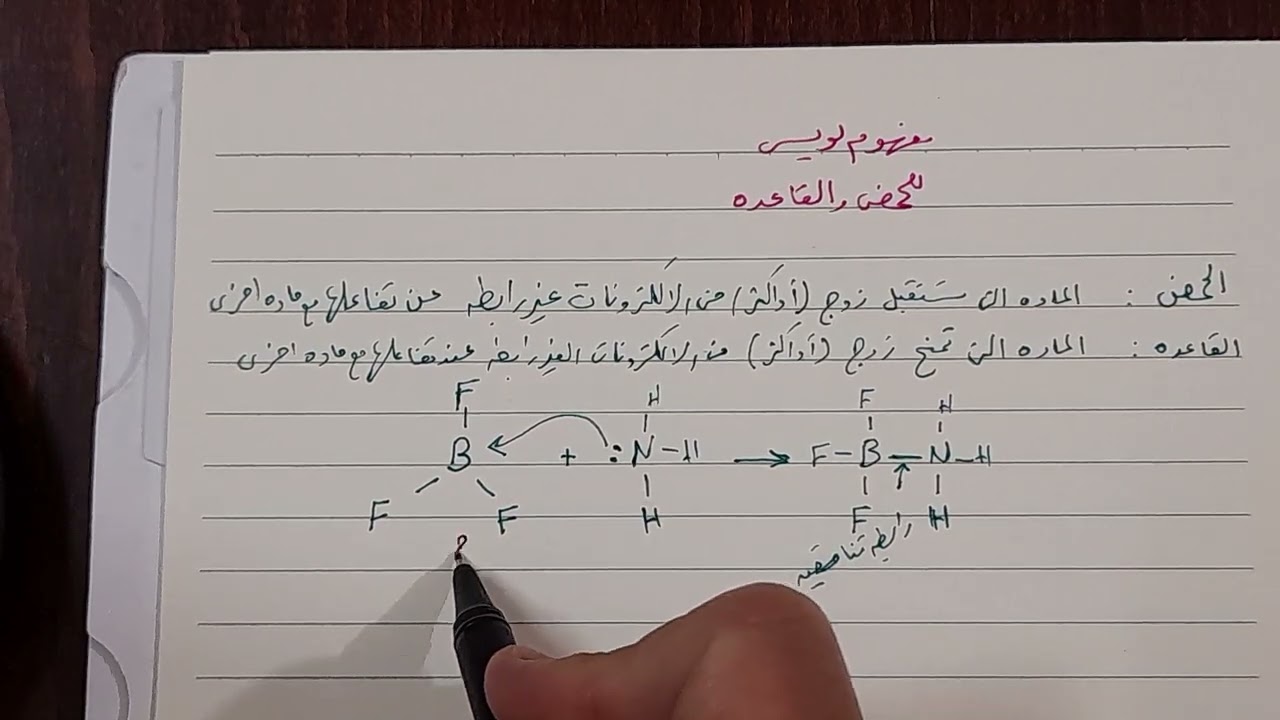 مفهوم لويس
للحمض والقاعده
الحمض : الماده التي تستقبل زوج (أو أكثر) من الالكترونات غير رابطه عن تفاعلها مع ماده اخرى
القاعده : الماده التي تمنح زوج (أو أكثر) من الالكترونات الغير رابطه عند تفاعلها مع ماده اخرى
F H F H
B + :N-H → F-B-N-H
F F H F H
رابطه تناسقيه